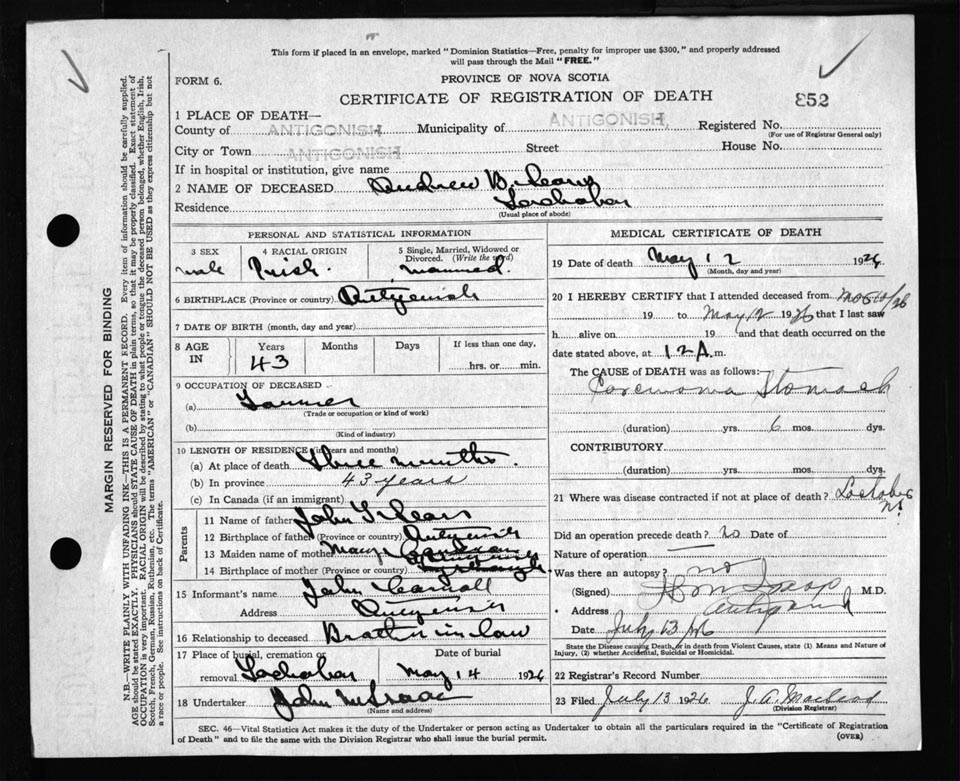 This form if placed in an envelope, marked "Dominion Statistics—Free, penalty for improper use $300," and properly addressed
will pass through the Mail "FREE."
FORM 6.
PROVINCE OF NOVA SCOTIA
CERTIFICATE OF REGISTRATION OF DEATH
852
1 PLACE OF DEATH—
County of ANTIGONISH Municipality of ANTIGONISH Registered No.
(For use of Registrar General only)
City or Town ANTIGONISH Street House No.
If in hospital or institution, give name
2 NAME OF DECEASED Andrew B.
Residence Lochaber
(Usual place of abode)
PERSONAL AND STATISTICAL INFORMATION
3 SEX 4 RACIAL ORIGIN 5 Single, Married, Widowed or
Divorced. (Write the word)
male Irish married
6 BIRTHPLACE (Province or country) Antigonish
7 DATE OF BIRTH (month, day and year)
8 AGE IN Years Months Days If less than one day,
43 hrs. or min.
9 OCCUPATION OF DECEASED
(a) Farmer
(Trade or occupation or kind of work)
(b)
(Kind of industry)
10 LENGTH OF RESIDENCE (in years and months)
(a) At place of death three months
(b) In province 43 years
(c) In Canada (if an immigrant)
Parents
11 Name of father John
12 Birthplace of father (Province or country)
13 Maiden name of mother Mary
14 Birthplace of mother (Province or country)
15 Informant's name John Carroll
Address
16 Relationship to deceased Brother in law
17 Place of burial, cremation or removal Lochaber Date of burial May 14 1926
18 Undertaker John
(Name and address)
MEDICAL CERTIFICATE OF DEATH
19 Date of death May 12 1926
(Month, day and year)
20 I HEREBY CERTIFY that I attended deceased from
19 to May 12 1926 that I last saw
h alive on 19 and that death occurred on
date stated above, at 12 A. m.
The CAUSE of DEATH was as follows:
Carcinoma Stomach
(duration) yrs. 6 mos. dys.
CONTRIBUTORY
(duration) yrs. mos. dys.
21 Where was disease contracted if not at place of death? Lochaber
NS
Did an operation precede death? no Date of
Nature of operation —
Was there an autopsy? no
(Signed) M.D.
Address
Date July 13/26
State the Disease causing Death, or in death from Violent Causes, state (1) Means and Nature of
Injury, (2) whether Accidental, Suicidal or Homicidal.
22 Registrar's Record Number
23 Filed July 13 1926 J. A. Macleod
(Division Registrar)
SEC. 46—Vital Statistics Act makes it the duty of the Undertaker or person acting as Undertaker to obtain all the particulars required in the "Certificate of Registration
of Death" and to file the same with the Division Registrar who shall issue the burial permit.
(OVER)
MARGIN RESERVED FOR BINDING
N.B.—WRITE PLAINLY WITH UNFADING INK—THIS IS A PERMANENT RECORD. Every item of information should be carefully supplied.
AGE should be stated EXACTLY. PHYSICIANS should STATE CAUSE OF DEATH in plain terms, so that it may be properly classified. Exact statement of
OCCUPATION is very important. RACIAL ORIGIN will be described by stating to what people or tongue the deceased person belonged, whether English, Irish,
Scotch, French, German, Russian, Ruthenian, etc. The terms "AMERICAN" or "CANADIAN" SHOULD NOT BE USED as they express citizenship but not
a race or people. See instructions on back of Certificate.